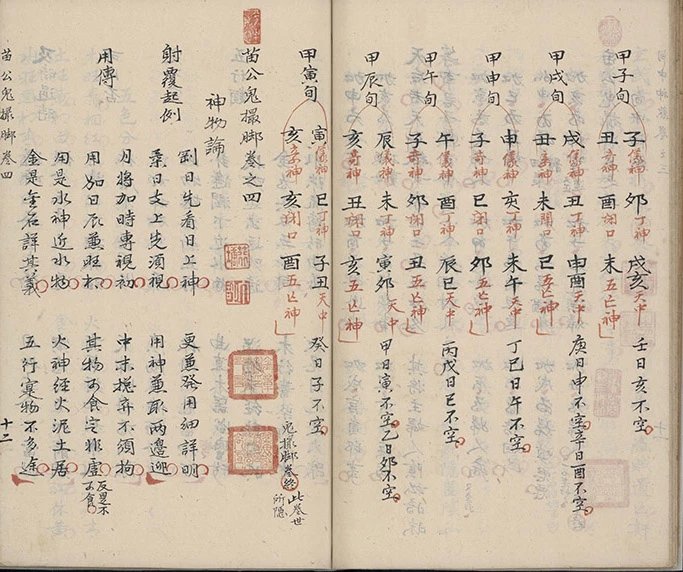 甲子旬
子儀神 卯丁神 戌亥天中 壬日亥不空
丑奇神 酉闭口 未五亡神
甲戌旬
戌儀神 丑丁神 申酉天中 庚日申不空辛日酉不空
丑奇神 未闭口 巳五亡神
甲申旬
申儀神 亥丁神 未午天中 丁巳日午不空
子奇神 巳闭口 卯五亡神
甲午旬
午儀神 酉丁神 辰巳天中 丙戊日巳不空
子奇神 卯闭口 丑五亡神
甲辰旬
辰儀神 未丁神 寅卯天中 甲日寅不空乙日卯不空
亥奇神 丑闭口 亥五亡神
甲寅旬
寅儀神 巳丁神 子丑天中 癸日子不空
亥奇神 亥闭口 酉五亡神
鬼撮脚卷終 此卷世所隱
苗公鬼撮脚卷之四
神物論
射覆起例
剛日先看日上神 更兼發用細詳明
柔日支上先須視 用神兼取兩邊迎
月將加時專視初 中末 弃不須拘
用傳
用加日辰兼旺相 其物可食定非虛 反是不可食
用是水神近水物 火神經火泥土居
金是金石詳其義 五行變物不多途
苗公鬼撮脚卷四 十二